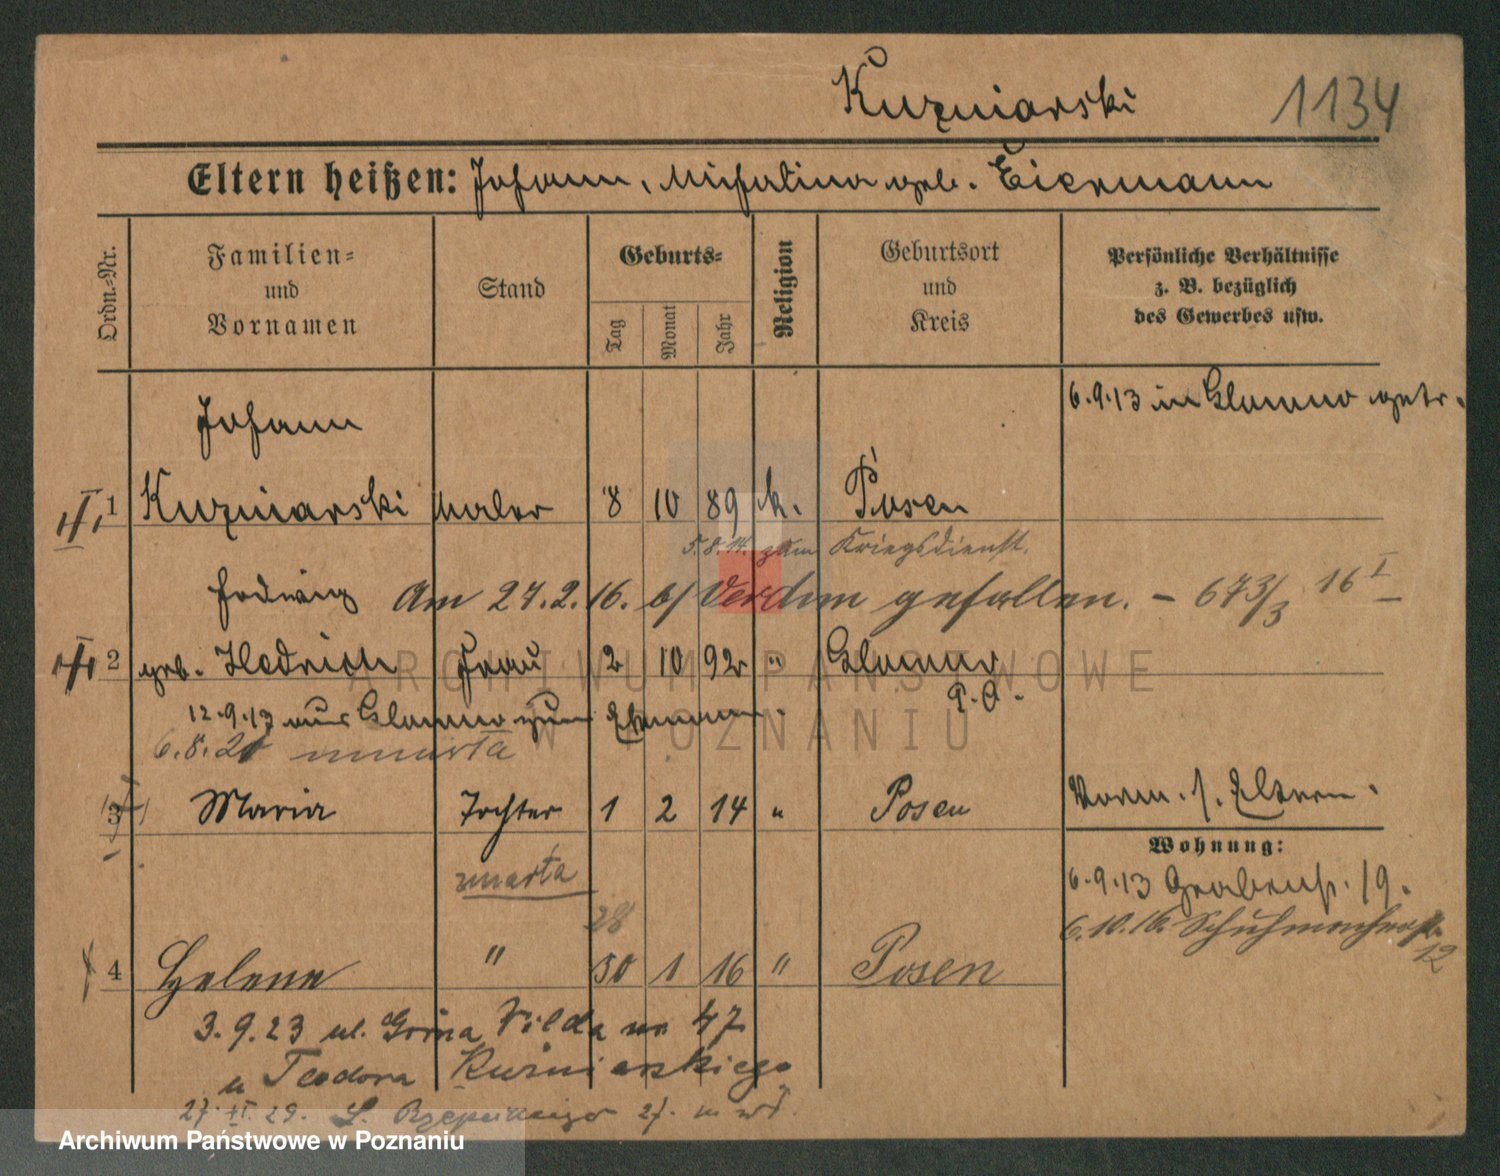 Kuzniarski 1134
Eltern heißen: Johann, Michalina geb. Eiermann
Ordn.-Nr.
Familien-
und
Vornamen
Stand
Geburts-
Tag
Monat
Jahr
Religion
Geburtsort
und
Kreis
Persönliche Verhältnisse
z. B. bezüglich
des Gewerbes usw.
6.9.13 in Glowno getr.
Johann
1 Kuzniarski Maler 8 10 89 k. Posen
5.8.14. zum Kriegsdienst.
Hedwig Am 27.2.16. b/ Verdun gefallen. – 673/3 16 I
2 geb. Hedrich Frau 2 10 92 " Glowno
P. O.
12.9.13 aus Glowno zum Ehemann.
6.8.20 umarła
3 Maria Tochter 1 2 14 " Posen
Vorm. s. Eltern.
Wohnung:
zmarła
6.9.13 Grabenstr. 19.
6.10.16. Schuhmacherstr.
12
28
4 Helene " 30 1 16 " Posen
3.9.23 ul. Górna Wilda nr 47
u Teodora Kuźniarskiego
27. XI. 29.
ARCHIWUM PAŃSTWOWE
W POZNANIU
Archiwum Państwowe w Poznaniu